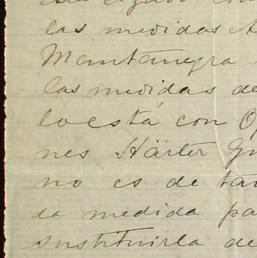 las medidas
Mantanegra
las medidas de
lo está con
nes Härler
no es de
da medida pa
sustituirla de